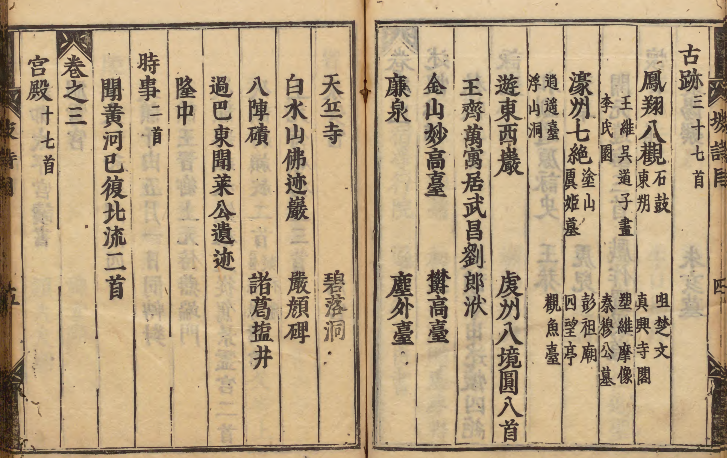 古跡 三十七首
鳳翔八觀 石鼓 詛楚文
東朔 真興寺閣
王維吳道子畫 塑維摩像
李氏園 秦穆公墓
濠州七絕 塗山 彭祖廟
虞姬墓 四望亭
逍遙臺 觀魚臺
浮山洞
遊東西巖 虔州八境圖八首
王齊萬寓居武昌劉郎洑
金山妙高臺 欝高臺
廉泉 塵外臺
天竺寺 碧落洞
白水山佛迹巖 嚴顏碑
八陣磧 諸葛塩井
過巴東聞萊公遺迹
隆中
時事 二首
聞黃河已復北流二首
卷之三
宮殿 十七首